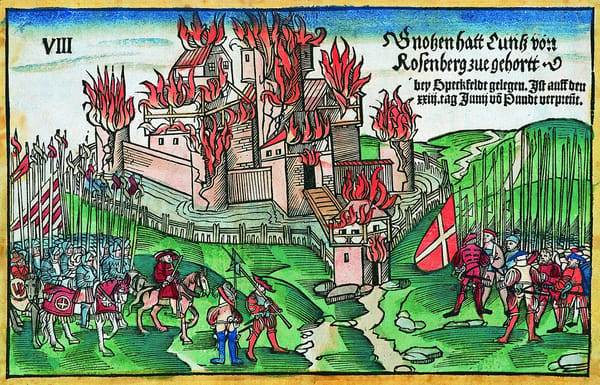 VIII
Gnotzen hatt Cuntz von
Rosenberg zue gehortt
bey Speckfeldt gelegen. Jst auff den
xxiij. tag Junij võ Pundt verprent.